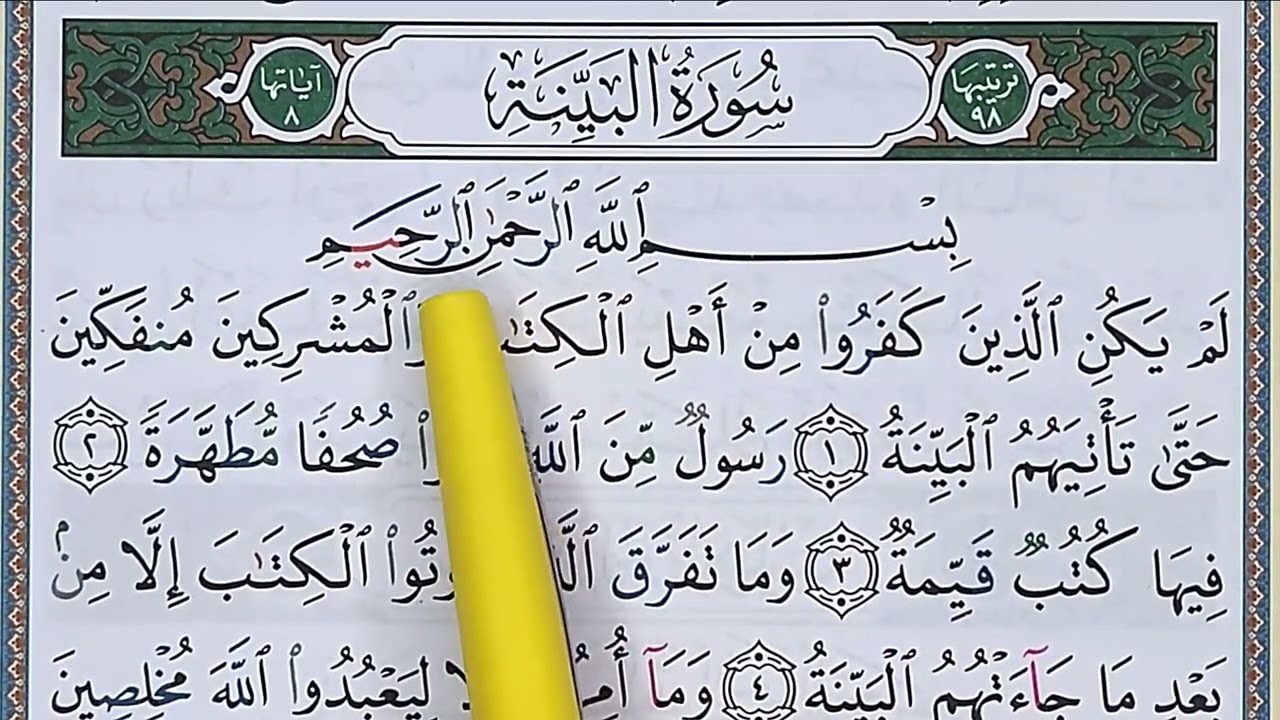 ترتيبها ٩٨ سُورَةُ البَيِّنَةِ آيَاتها ٨
بِسْمِ ٱللَّهِ ٱلرَّحْمَٰنِ ٱلرَّحِيمِ
لَمْ يَكُنِ ٱلَّذِينَ كَفَرُوا۟ مِنْ أَهْلِ ٱلْكِتَٰ ٱلْمُشْرِكِينَ مُنفَكِّينَ
حَتَّىٰ تَأْتِيَهُمُ ٱلْبَيِّنَةُ ١ رَسُولٌ مِّنَ ٱللَّهِ صُحُفًا مُّطَهَّرَةً ٢
فِيهَا كُتُبٌ قَيِّمَةٌ ٣ وَمَا تَفَرَّقَ ٱلْكِتَٰبَ إِلَّا مِنۢ
بَعْدِ مَا جَآءَتْهُمُ ٱلْبَيِّنَةُ ٤ وَمَآ لِيَعْبُدُوا۟ ٱللَّهَ مُخْلِصِينَ